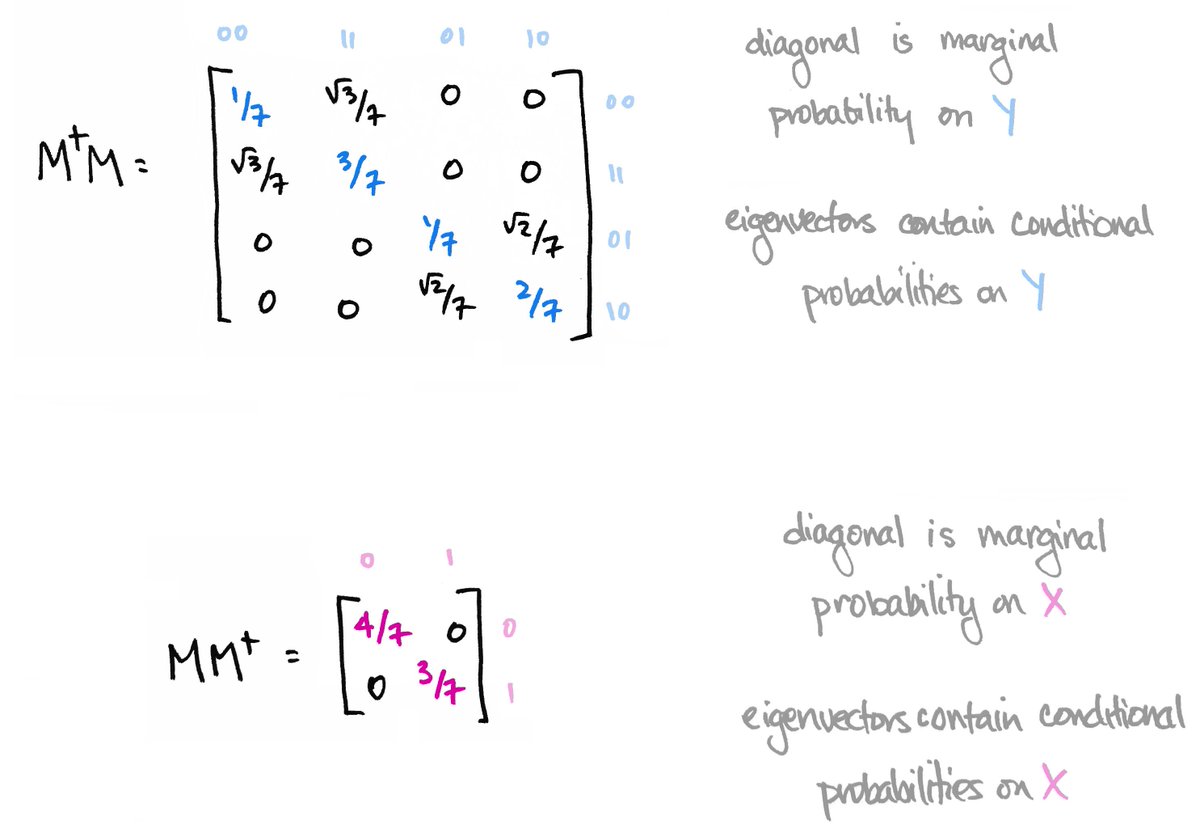 00 11 01 10
diagonal is marginal
probability on Y
M†M = [ 1/7 √3/7 0 0 ] 00
√3/7 3/7 0 0 11
0 0 1/7 √2/7 01
0 0 √2/7 2/7 10
eigenvectors contain conditional
probabilities on Y
0 1
MM† = [ 4/7 0 ] 0
0 3/7 1
diagonal is marginal
probability on X
eigenvectors contain conditional
probabilities on X